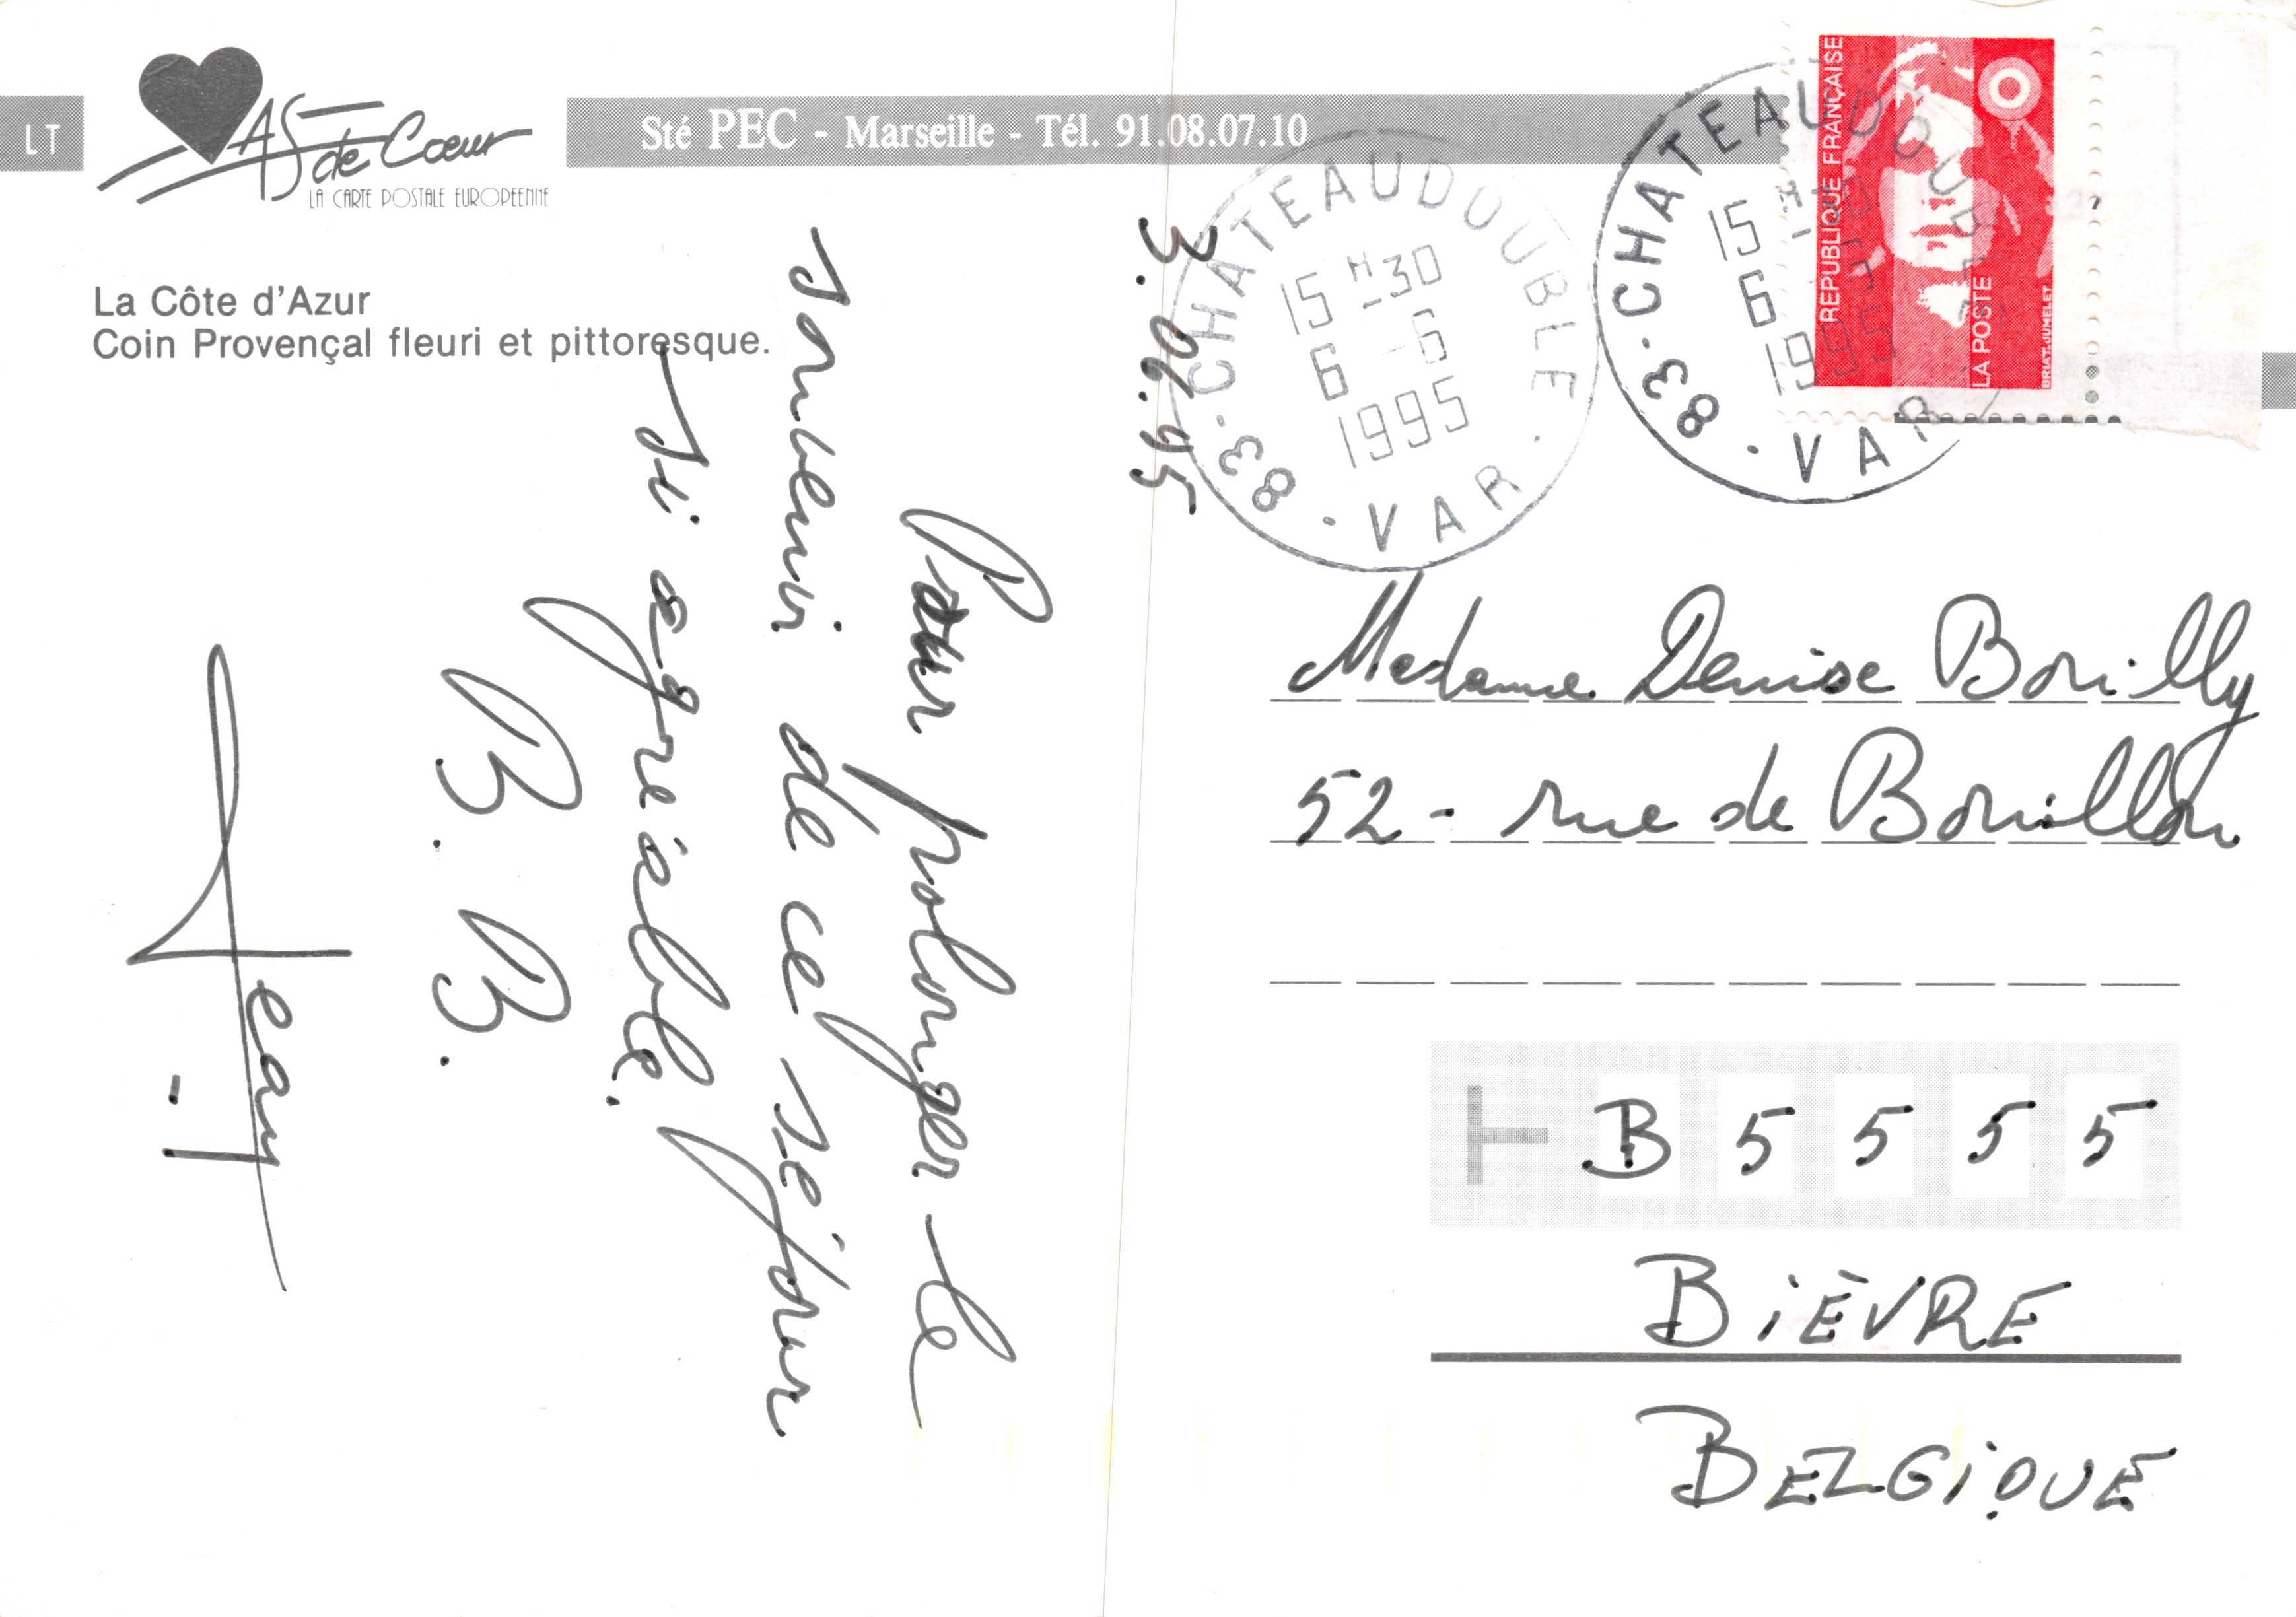 LT
AS de Coeur
LA CARTE POSTALE EUROPEENNE
Sté PEC - Marseille - Tél. 91.08.07.10
La Côte d'Azur
Coin Provençal fleuri et pittoresque.
3.06.95
Pour prolonger le
souvenir de ce séjour
si agréable.
B. B.
Jean
CHATEAUDOUBLE
15H30
6-6
1995
83 · VAR ·
CHATEAUDOUBLE
15H-30
6-6
1995
83 · VAR
RÉPUBLIQUE FRANÇAISE
LA POSTE
BRIAT-JUMELET
Madame Denise Bouilly
52 - rue de Bouillon
B 5555
BIÈVRE
BELGIQUE